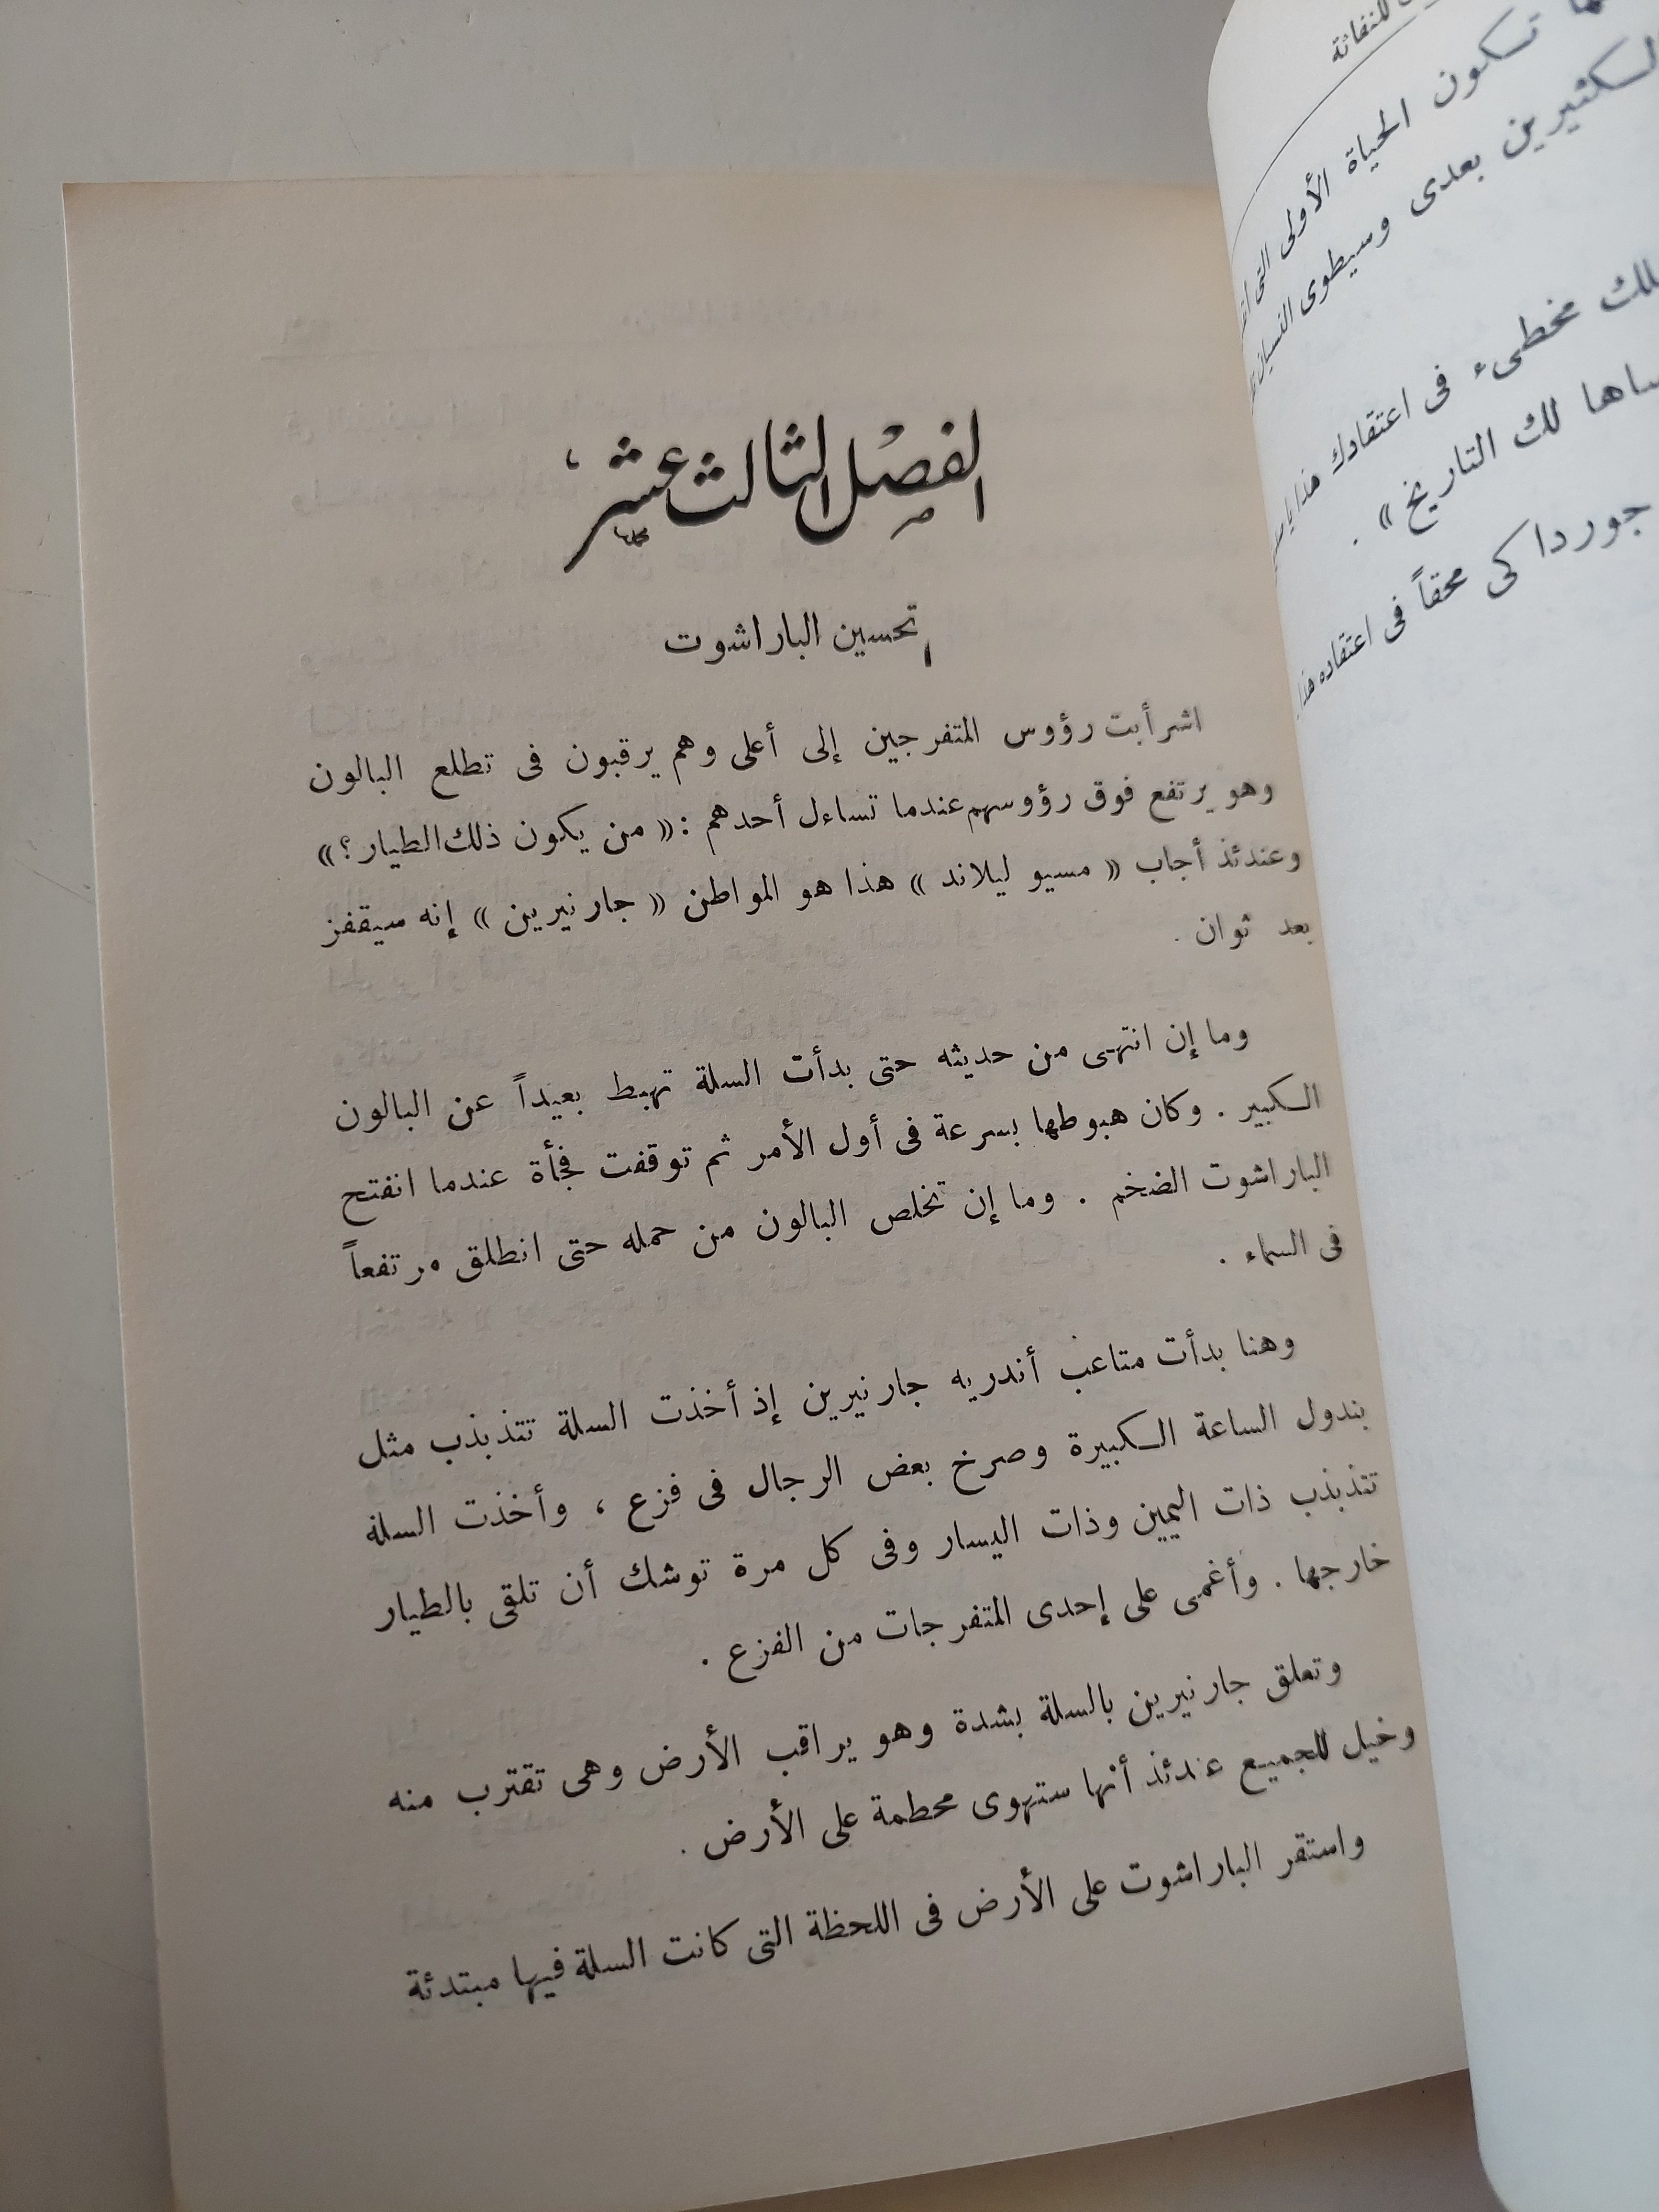 الفصل الثالث عشر
تحسين الباراشوت
اشرأبت رؤوس المتفرجين إلى أعلى وهم يرقبون فى تطلع البالون
وهو يرتفع فوق رؤوسهم عندما تساءل أحدهم : « من يكون ذلك الطيار ؟ »
وعندئذ أجاب « مسيو ليلاند » هذا هو المواطن « جارنيرين » إنه سيقفز
بعد ثوان .
وما إن انتهى من حديثه حتى بدأت السلة تهبط بعيداً عن البالون
الكبير . وكان هبوطها بسرعة فى أول الأمر ثم توقفت فجأة عندما انفتح
الباراشوت الضخم . وما إن تخلص البالون من حمله حتى انطلق مرتفعاً
فى السماء .
وهنا بدأت متاعب أندريه جارنيرين إذ أخذت السلة تتذبذب مثل
بندول الساعة الكبيرة وصرخ بعض الرجال فى فزع ، وأخذت السلة
تتذبذب ذات اليمين وذات اليسار وفى كل مرة توشك أن تلقى بالطيار
خارجها . وأغمى على إحدى المتفرجات من الفزع .
وتعلق جارنيرين بالسلة بشدة وهو يراقب الأرض وهى تقترب منه
وخيل للجميع عندئذ أنها ستهوى محطمة على الأرض .
واستقر الباراشوت على الأرض فى اللحظة التى كانت السلة فيها مبتدئة
تكون الحياة الأولى التى
الكثيرين بعدى وسيطوى النسيان
مخطىء فى اعتقادك هذا
لك التاريخ » .
جورداكى محقاً فى اعتقاده هذا